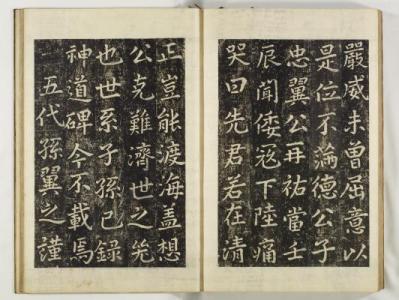 嚴威未曾屈意以
是位不滿德公子
忠翼公再祐當壬
辰聞倭寇下陸痛
哭曰先君若在清
正豈能渡海盖想
公克難濟世之先
也世系子孫已錄
神道碑今不載焉
五代孫翼之謹